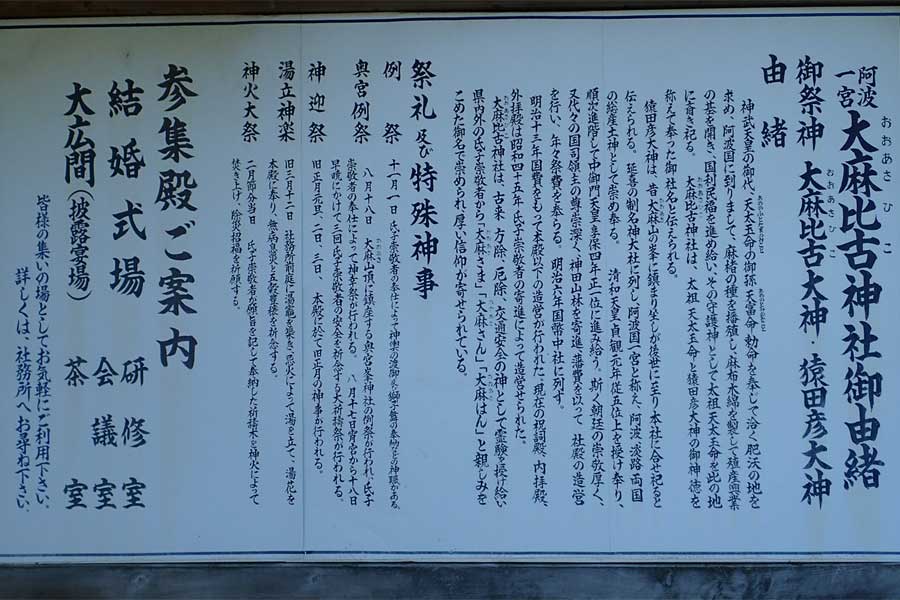 阿波一宮 大麻比古神社御由緒
おおあさひこ
御祭神 大麻比古大神・猿田彦大神
おおあさひこ
由緒
神武天皇の御代、天太玉命の御孫 天富命 勅命を奉じて洽く肥沃の地を
求め、阿波国に到りまして、麻楮の種を播殖し、麻布木綿を製して殖産興業
の基を開き、国利民福を進め給い、その守護神として太祖天太玉命を此の地
に斎き祀る。 大麻比古神社は、太祖天太玉命と猿田彦大神の御神徳を
称えて奉った御社名と伝えられる。
猿田彦大神は、昔大麻山の峯に鎮まり坐しが後世に至り本社に合せ祀ると
伝えられる。延喜の制名神大社に列し、阿波国一宮と称え、阿波、淡路両国
の総産土神として崇め奉る。 清和天皇貞観元年従五位上を授け奉り、
順次進階して中御門天皇享保四年正一位に進み給う。斯く朝廷の崇敬厚く、
又代々の国司領主の尊崇深く、神田山林を寄進、藩費を以って、社殿の造営
を行い、年々祭費を奉らる。明治六年国幣中社に列す。
明治十三年国費をもって本殿以下の造営が行われた。現在の祝詞殿、内拝殿、
外拝殿は昭和四十五年、氏子崇敬者の寄進によって造営せられた。
大麻比古神社は、古来、方除、厄除、交通安全の神として霊験を授け給い
県内外の氏子崇敬者から「大麻さま」「大麻さん」「大麻はん」と親しみを
こめた御名で崇められ、厚い信仰が寄せられている。
祭礼及び特殊神事
例祭 十一月一日 氏子崇敬者の奉仕によって神輿の渡御、獅子舞の奉納などの神賑がある。
奥宮例祭 八月十八日 大麻山頂に鎮座する奥宮峯神社の例祭が行われ、氏子
崇敬者の奉仕によって神幸祭が行われる。 八月十七日宵宮から十八日
早暁にかけて三回、氏子崇敬者の安全を祈念する大祈祷祭が行われる。
神迎祭 旧正月元旦、二日、三日、 本殿に於て旧正月の神事が行われる。
湯立神楽 旧三月十二日 社務所前庭に湯竈を築き、忌火によって湯を立て、湯花を
本殿に奉り、無病息災と五穀豊穣を祈念する。
神火大祭 二月節分当日 氏子崇敬者が願旨を記して奉納した祈祷木を神火によって
焚き上げ、除災招福を祈願する。
参集殿ご案内
結婚式場 研修室
会議室
大広間(披露宴場) 茶室
皆様の集いの場としてお気軽にご利用下さい。
詳しくは、社務所へお尋ね下さい。